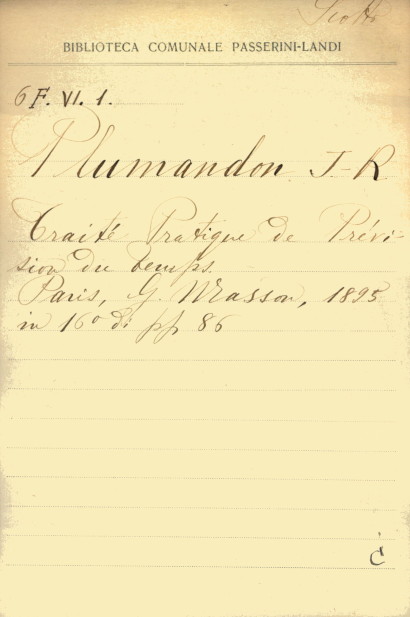 Scotti
BIBLIOTECA COMUNALE PASSERINI-LANDI
6 F. VI. 1.
Plumandon J-R
Traité Pratique de Prévi-
sion du temps.
Paris, G. Masson, 1895
in 16º di pp 86
C